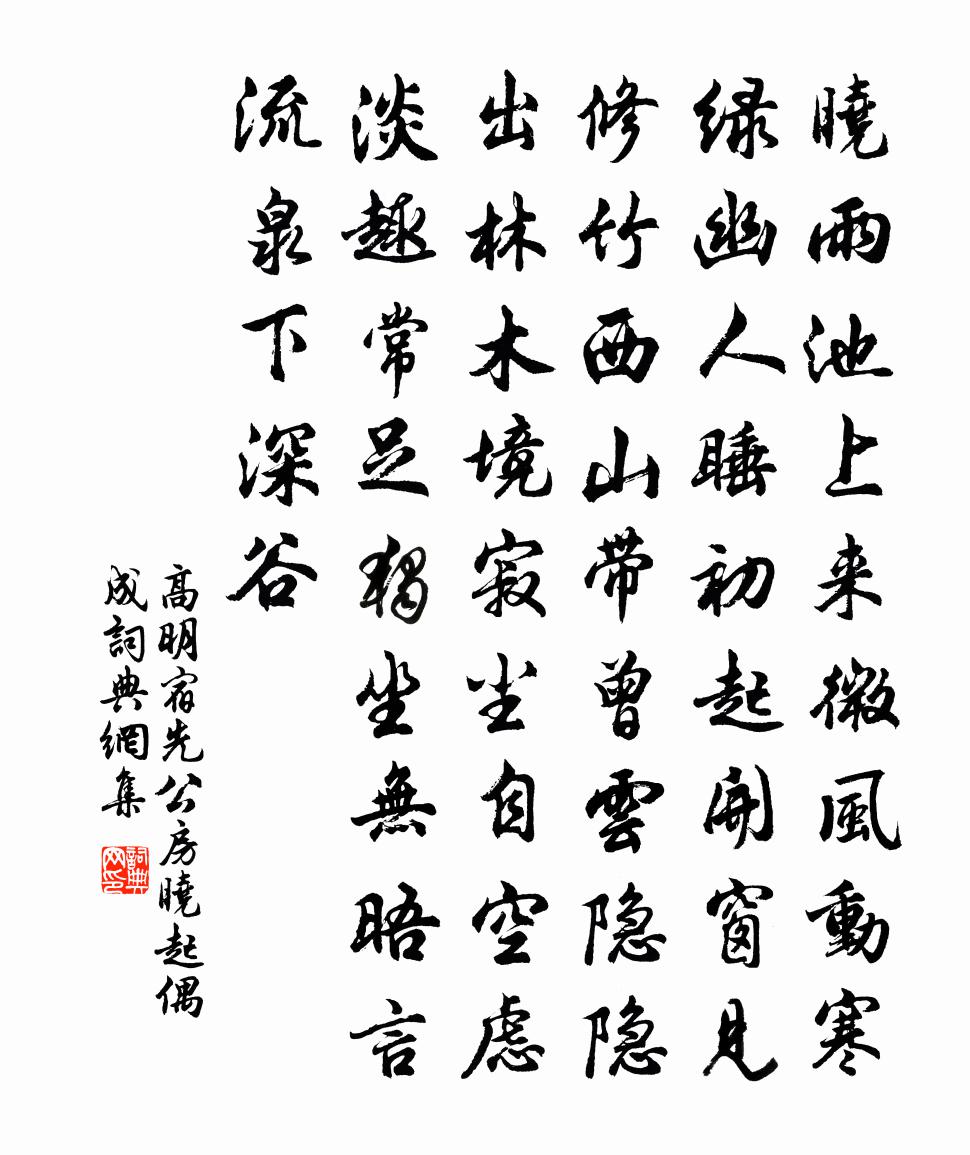 曉雨池上来微風動寒
緑幽人睡初起開窗見
修竹西山带曾雲隐隐
出林木境寂尘自空虑
淡趣常足独坐無晤言
流泉下深谷
高明宿先公房曉起偶
成詞典網集
詞典
网印